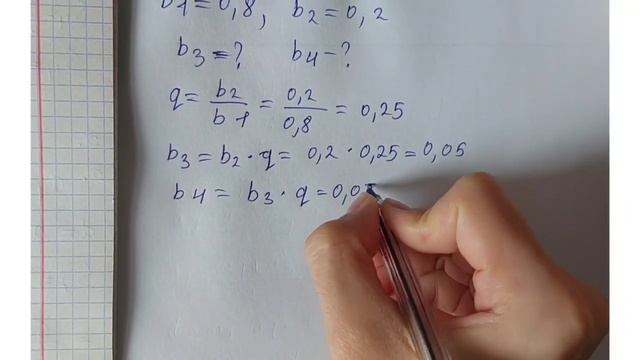 b1=0,8, b2=0,2
b3=? b4-?
q= b2/b1 = 0,2/0,8 = 0,25
b3=b2·q= 0,2·0,25=0,05
b4= b3·q=0,05